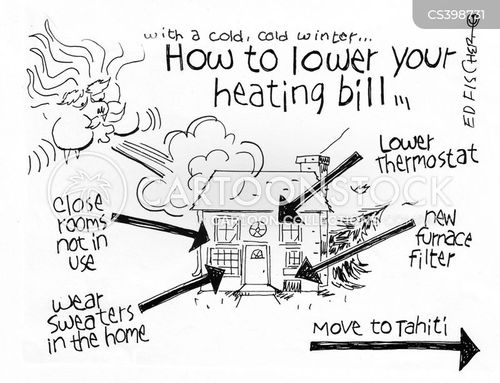 CS398731
with a cold, cold winter...
How to lower your
heating bill...
ED FISCHER ©
Lower
Thermostat
close
rooms
not in
use
CARTOONSTOCK
new
furnace
filter
wear
sweaters
in the home
MOVE TO Tahiti